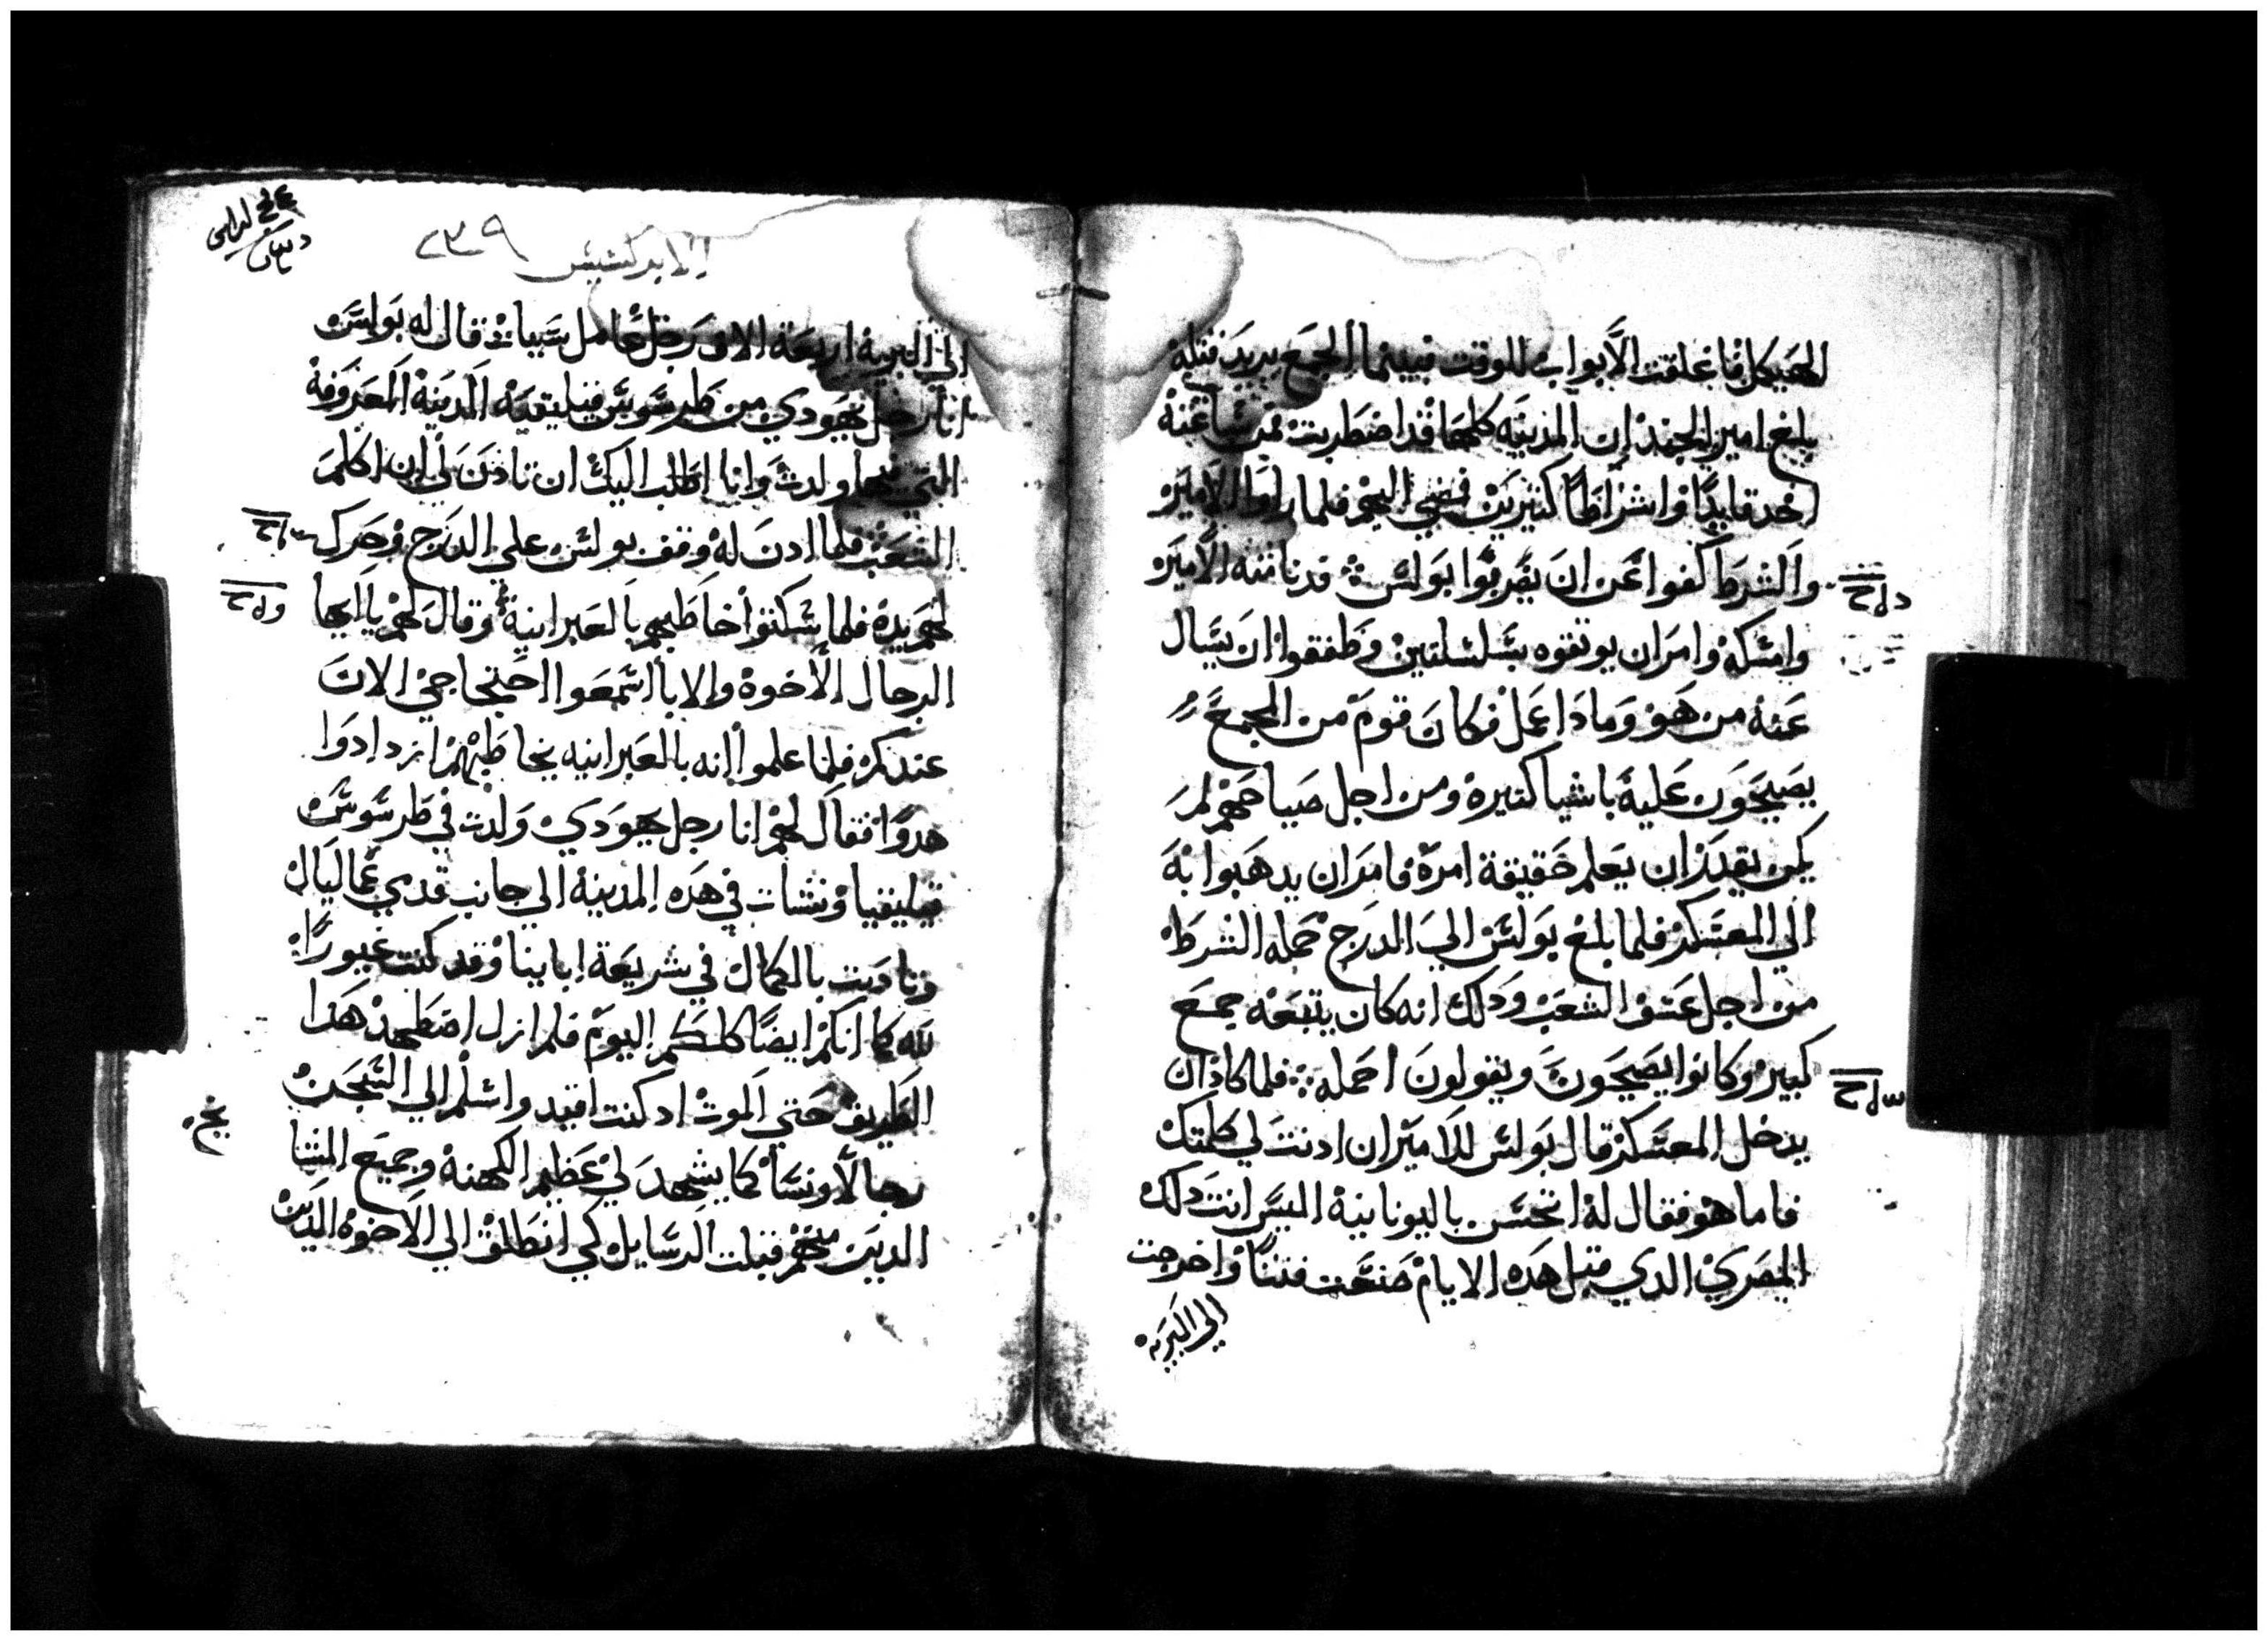 الهيكل فاغلقت الابواب للوقت فبينما الجمع يريد قتله
بلغ امير الجند ان المدينه كلها قد اضطربت فمن ساعته
اخد قايدًا واشراطًا كثيرين فنحي اليهم فلما راوا الامير
والشرط كفوا عن ان يضربوا بولس قدنا منه الامير
وامسكه وامر ان يوتقوه بسلسلتين وطفقوا ان يسال
عنه من هو وما دا عمل فكان قوم من الجمع
يصيحون عليه باشيا كتيره ومن اجل صياحهم لم
يكن يقدر ان يعلم حقيقة امره فامر ان يدهبوا به
الي المعسكر فلما بلغ بولس الي الدرج حمله الشرط
من اجل عسق الشعب ودلك انه كان يتبعه جمع
كبير وكانوا يصيحون ويقولون احمله فلما كاد ان
يدخل المعسكر قال بولس للامير ان ادنت لي كلمتك
فاما هو فقال له اتحسن باليونانية اليس انت دلك
المصري الدي قبل هده الايام صنعت فتنا واخرجت
الي البريه
الابركسيس
٢٣٩
الي البريه اربعة الاف رجل عامل سيات قال له بولس
انا رجل يهودي من طرسوس قيليقيه المدينة المعروفة
التي فيها ولدت وانا اطلب اليك ان تادن لي ان اكلم
الشعب فلما ادن له وقف بولس علي الدرج وحرك
لهم يده فلما سكتوا خاطبهم بالعبرانية وقال لهم يا ايها
الرجال الاخوة والابا اسمعوا احتجاجي الان
عندكم فلما علموا انه بالعبرانيه يخاطبهم ازدادوا
هدوًا فقال لهم انا رجل يهودي ولدت في طرسوس
قيليقيا ونشات في هده المدينة الي جانب قدمي غماليال
وتادبت بالكمال في شريعة ابايينا وقد كنت غيورًا
لله كما انكم ايضًا كلكم اليوم فلم ازل اضطهد هدا
الطريق حتي الموت اد كنت اقيد واسلم الي السجن
رجالًا ونسا كما يشهد لي عظيم الكهنة وجميع المشا
الدين منهم قبلت الرسايل كي انطلق الي الاخوه الدين